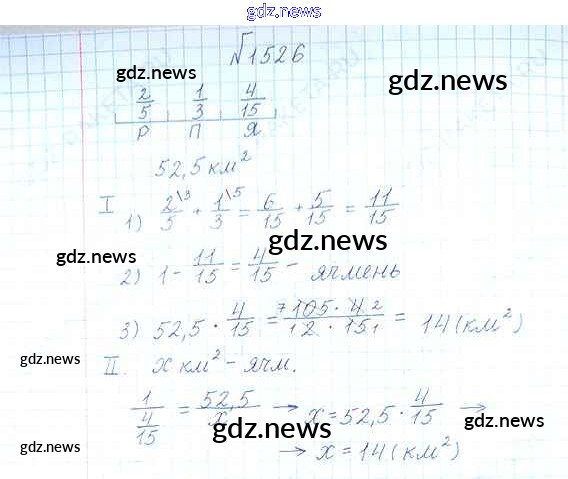 gdz.news
№1526
gdz.news gdz.news
2/5 1/3 4/15
Р П Я
gdz.news
52,5 км²
I 1) 2\3/5 + 1\5/3 = 6/15 + 5/15 = 11/15
gdz.news
gdz.news
2) 1 - 11/15 = 4/15 - ячмень
3) 52,5 · 4/15 = 7 105 · 4 2/1 2 · 15 1 = 14 (км²)
gdz.news gdz.news
II. x км² - ячм.
1/(4/15) = 52,5/x → x = 52,5 · 4/15 →
gdz.news gdz.news gdz.news
→ x = 14 (км²)